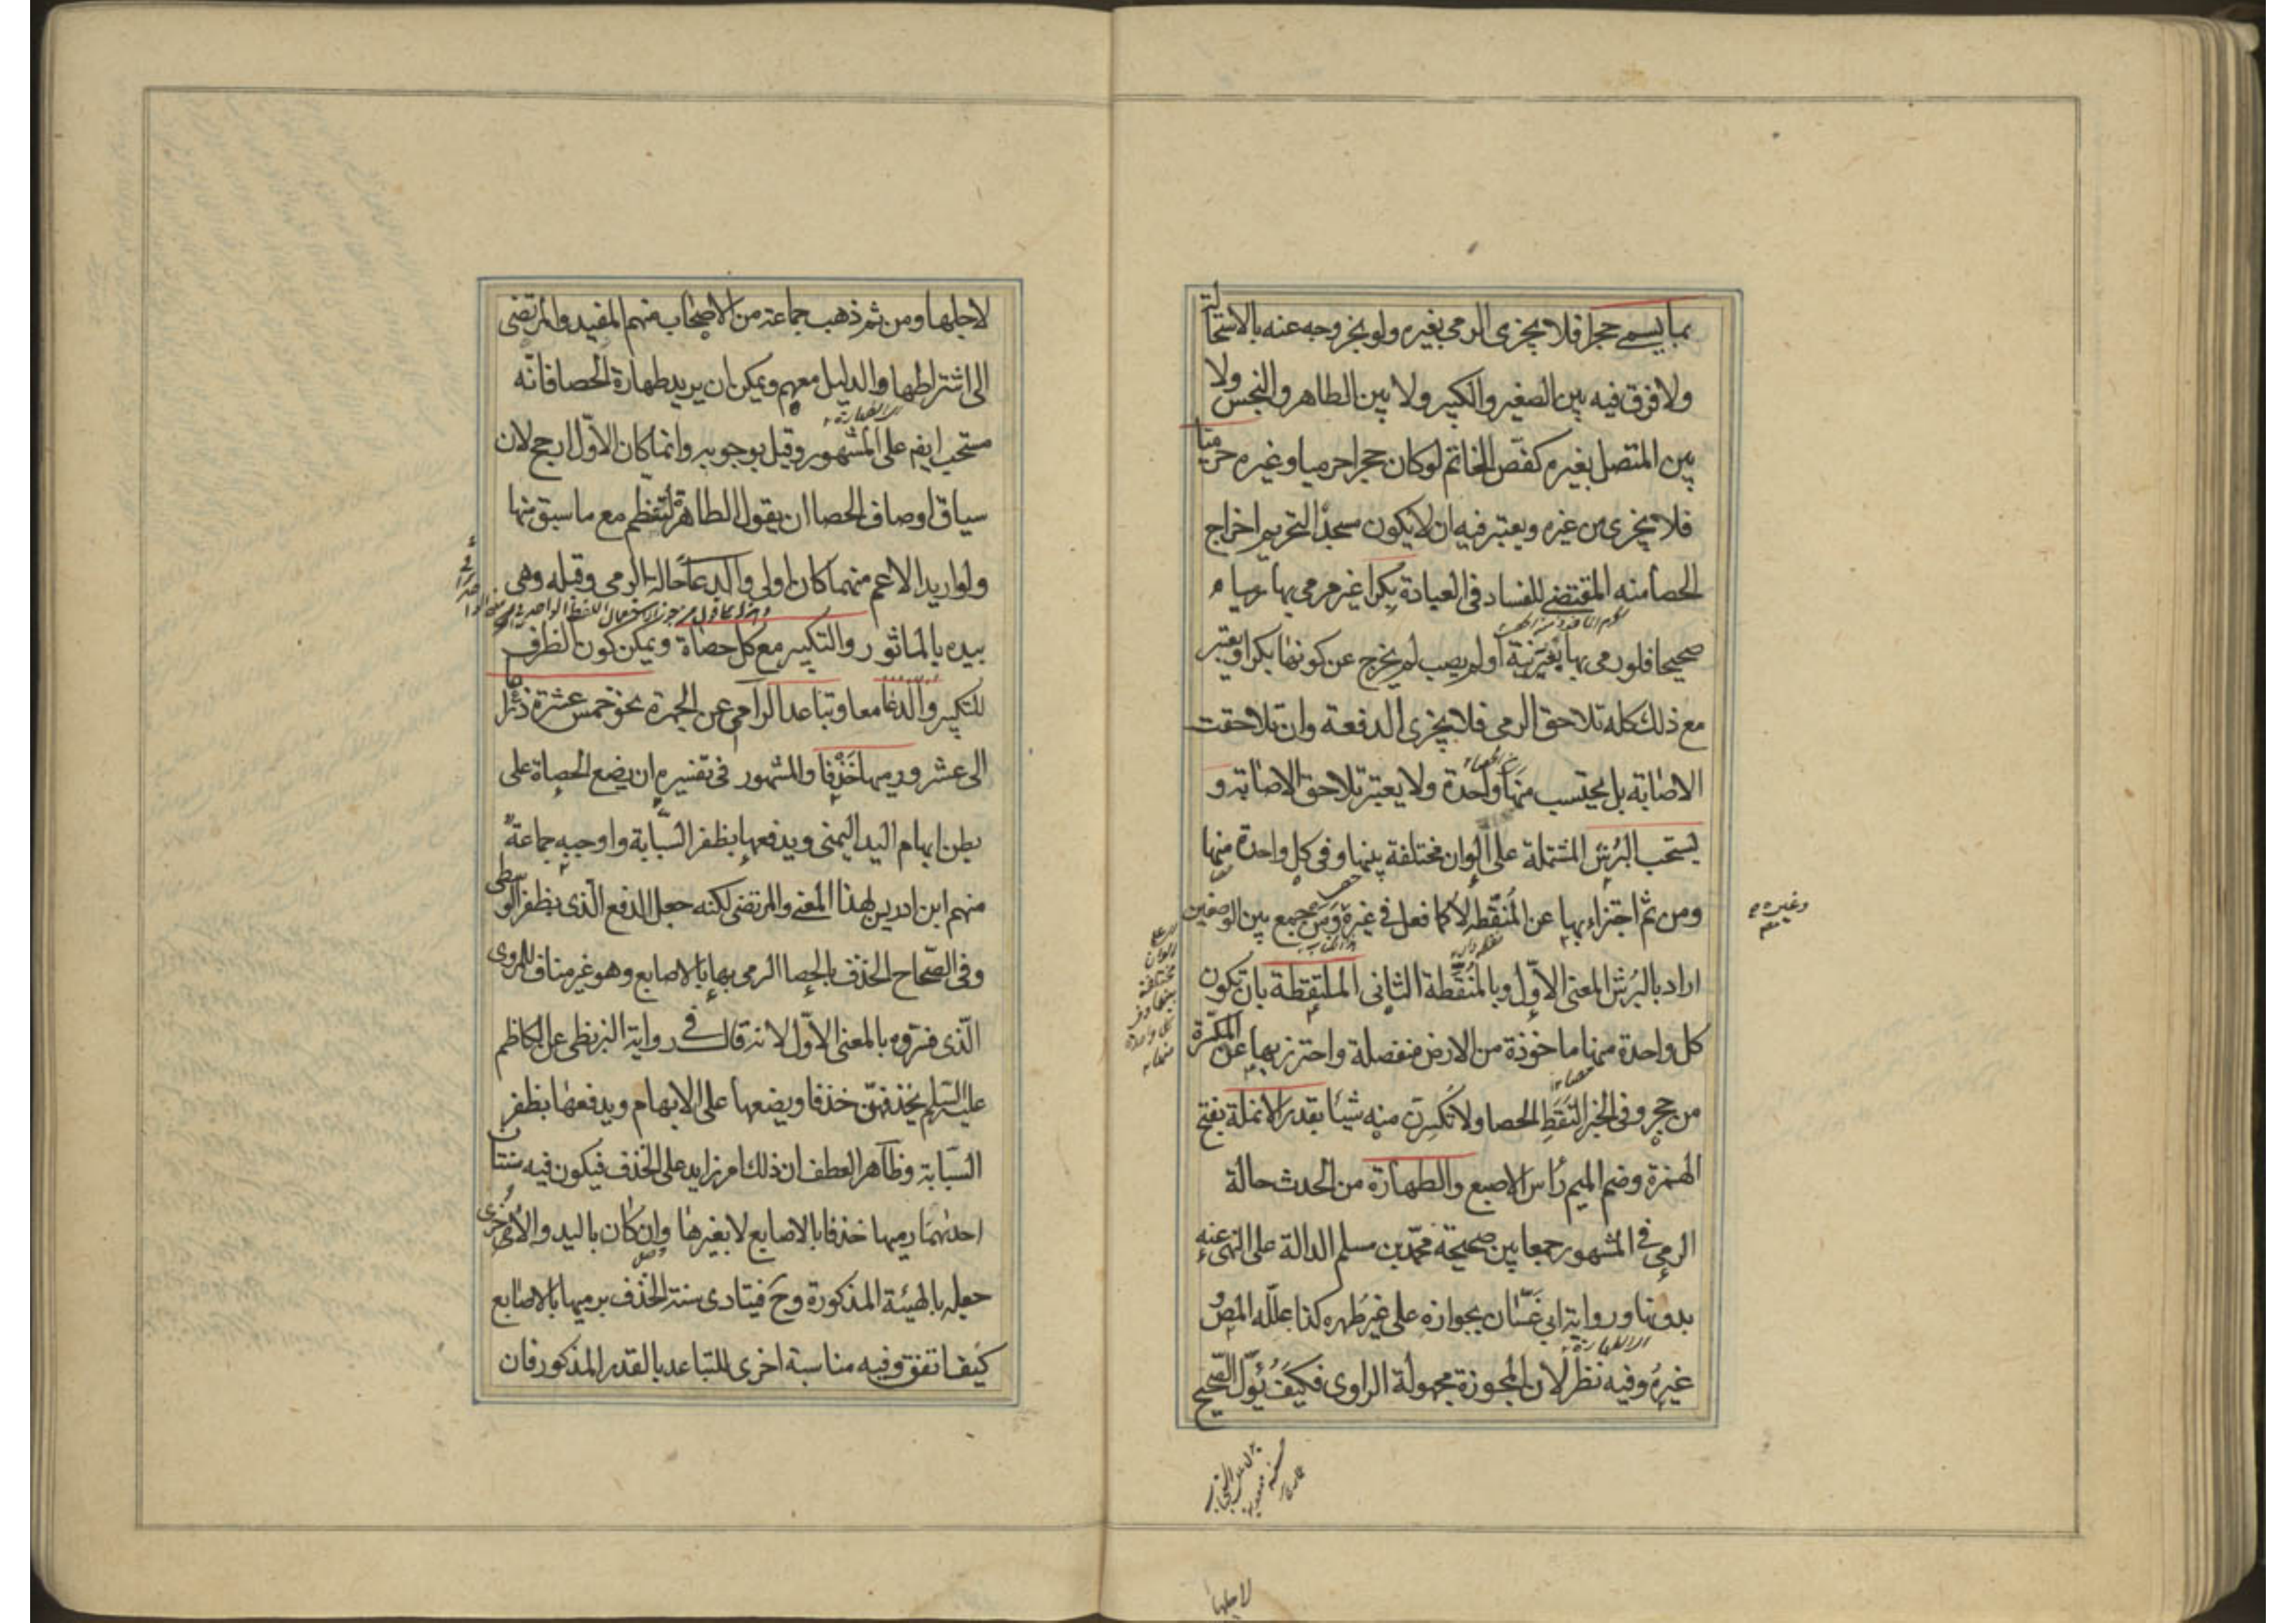 بما يسمى حجرا فلا يجزى الرمى بغيره ولو بخروجه عنه بالاستحالة
ولا فرق فيه بين الصغير والكبير ولا بين الطاهر والنجس ولا
بين المتصل بغيره كفص الخاتم لو كان حجرا حرميا وغيره حرميا
فلا يجزى من غيره ويعتبر فيه ان لا يكون مسجدا لتحريم اخراج
الحصا منه المقتضى للفساد فى العبادة بكرا غير مرمى بها رميا
صحيحا فلو رمى بها بغير نية او لم يصب لم يخرج عن كونها بكرا ويعتبر
مع ذلك كله تلاحق الرمى فلا يجزى الدفعة وان تلاحقت
الاصابة بل يحتسب منها واحدة ولا يعتبر تلاحق الاصابة و
يستحب البرش المشتملة على الوان مختلفة بينها وفى كل واحدة منها
ومن ثم اجتزاء بها عن المنقطة لا كما فعل فى غيره ومن جمع بين الوصفين
وغيره
اراد بالبرش المعنى الاول وبالمنقطة الثانى الملتقطة بان تكون
كل واحدة منها ماخوذة من الارض منفصلة واحترز بها عن المكسرة
من حجر وفى الخبر التقط الحصا ولا تكسرن منه شيئا بقدر الانملة بفتح
الهمزة وضم الميم رأس الاصبع والطهارة من الحدث حالة
الرمى فى المشهور جمعا بين صحيحة محمد بن مسلم الدالة على النهى عنه
بدونها ورواية ابى غسان بجوازه على غير طهر كذا علله المص و
غيره وفيه نظر لان المجوزة مجهولة الراوى فكيف يؤل الصحيح
لاجلها
لاجلها ومن ثم ذهب جماعة من الاصحاب منهم المفيد والمرتضى
الى اشتراطها والدليل معهم ويمكن ان يريد طهارة الحصا فانه
مستحب ايضم على المشهور وقيل بوجوبه وانما كان الاول ارجح لان
سياق اوصاف الحصا ان يقول الطاهرة لتنتظم مع ما سبق منها
ولو اريد الاعم منهما كان اولى والدعا حالة الرمى وقبله وهى
بيده بالماثور والتكبير مع كل حصاة ويمكن كون الظرف
للتكبير والدعا معا وتباعد الرامى عن الجمرة نحو خمس عشرة ذراعا
الى عشر ورميها خذفا والمشهور فى تفسيره ان يضع الحصاة على
بطن ابهام اليد اليمنى ويدفعها بظفر السبابة واوجبه جماعة
منهم ابن ادريس لهذا المعنى والمرتضى لكنه جعل الدفع الذى بظفر الوسطى
وفى الصحاح الخذف بالحصا الرمى بها بالاصابع وهو غير مناف للمروى
الذى فسروه بالمعنى الاول لانه قال فى رواية البزنطى عن الكاظم
عليه السلم يخذفهن خذفا ويضعها على الابهام ويدفعها بظفر
السبابة وظاهر العطف ان ذلك امر زايد على الخذف فيكون فيه سنتان
احدىهما رميها خذفا بالاصابع لا بغيرها وان كان باليد والاخرى
جعله بالهيئة المذكورة وح فيتادى سنة الخذف برميها بالاصابع
كيف اتفق وفيه مناسبة اخرى للتباعد بالقدر المذكور فان